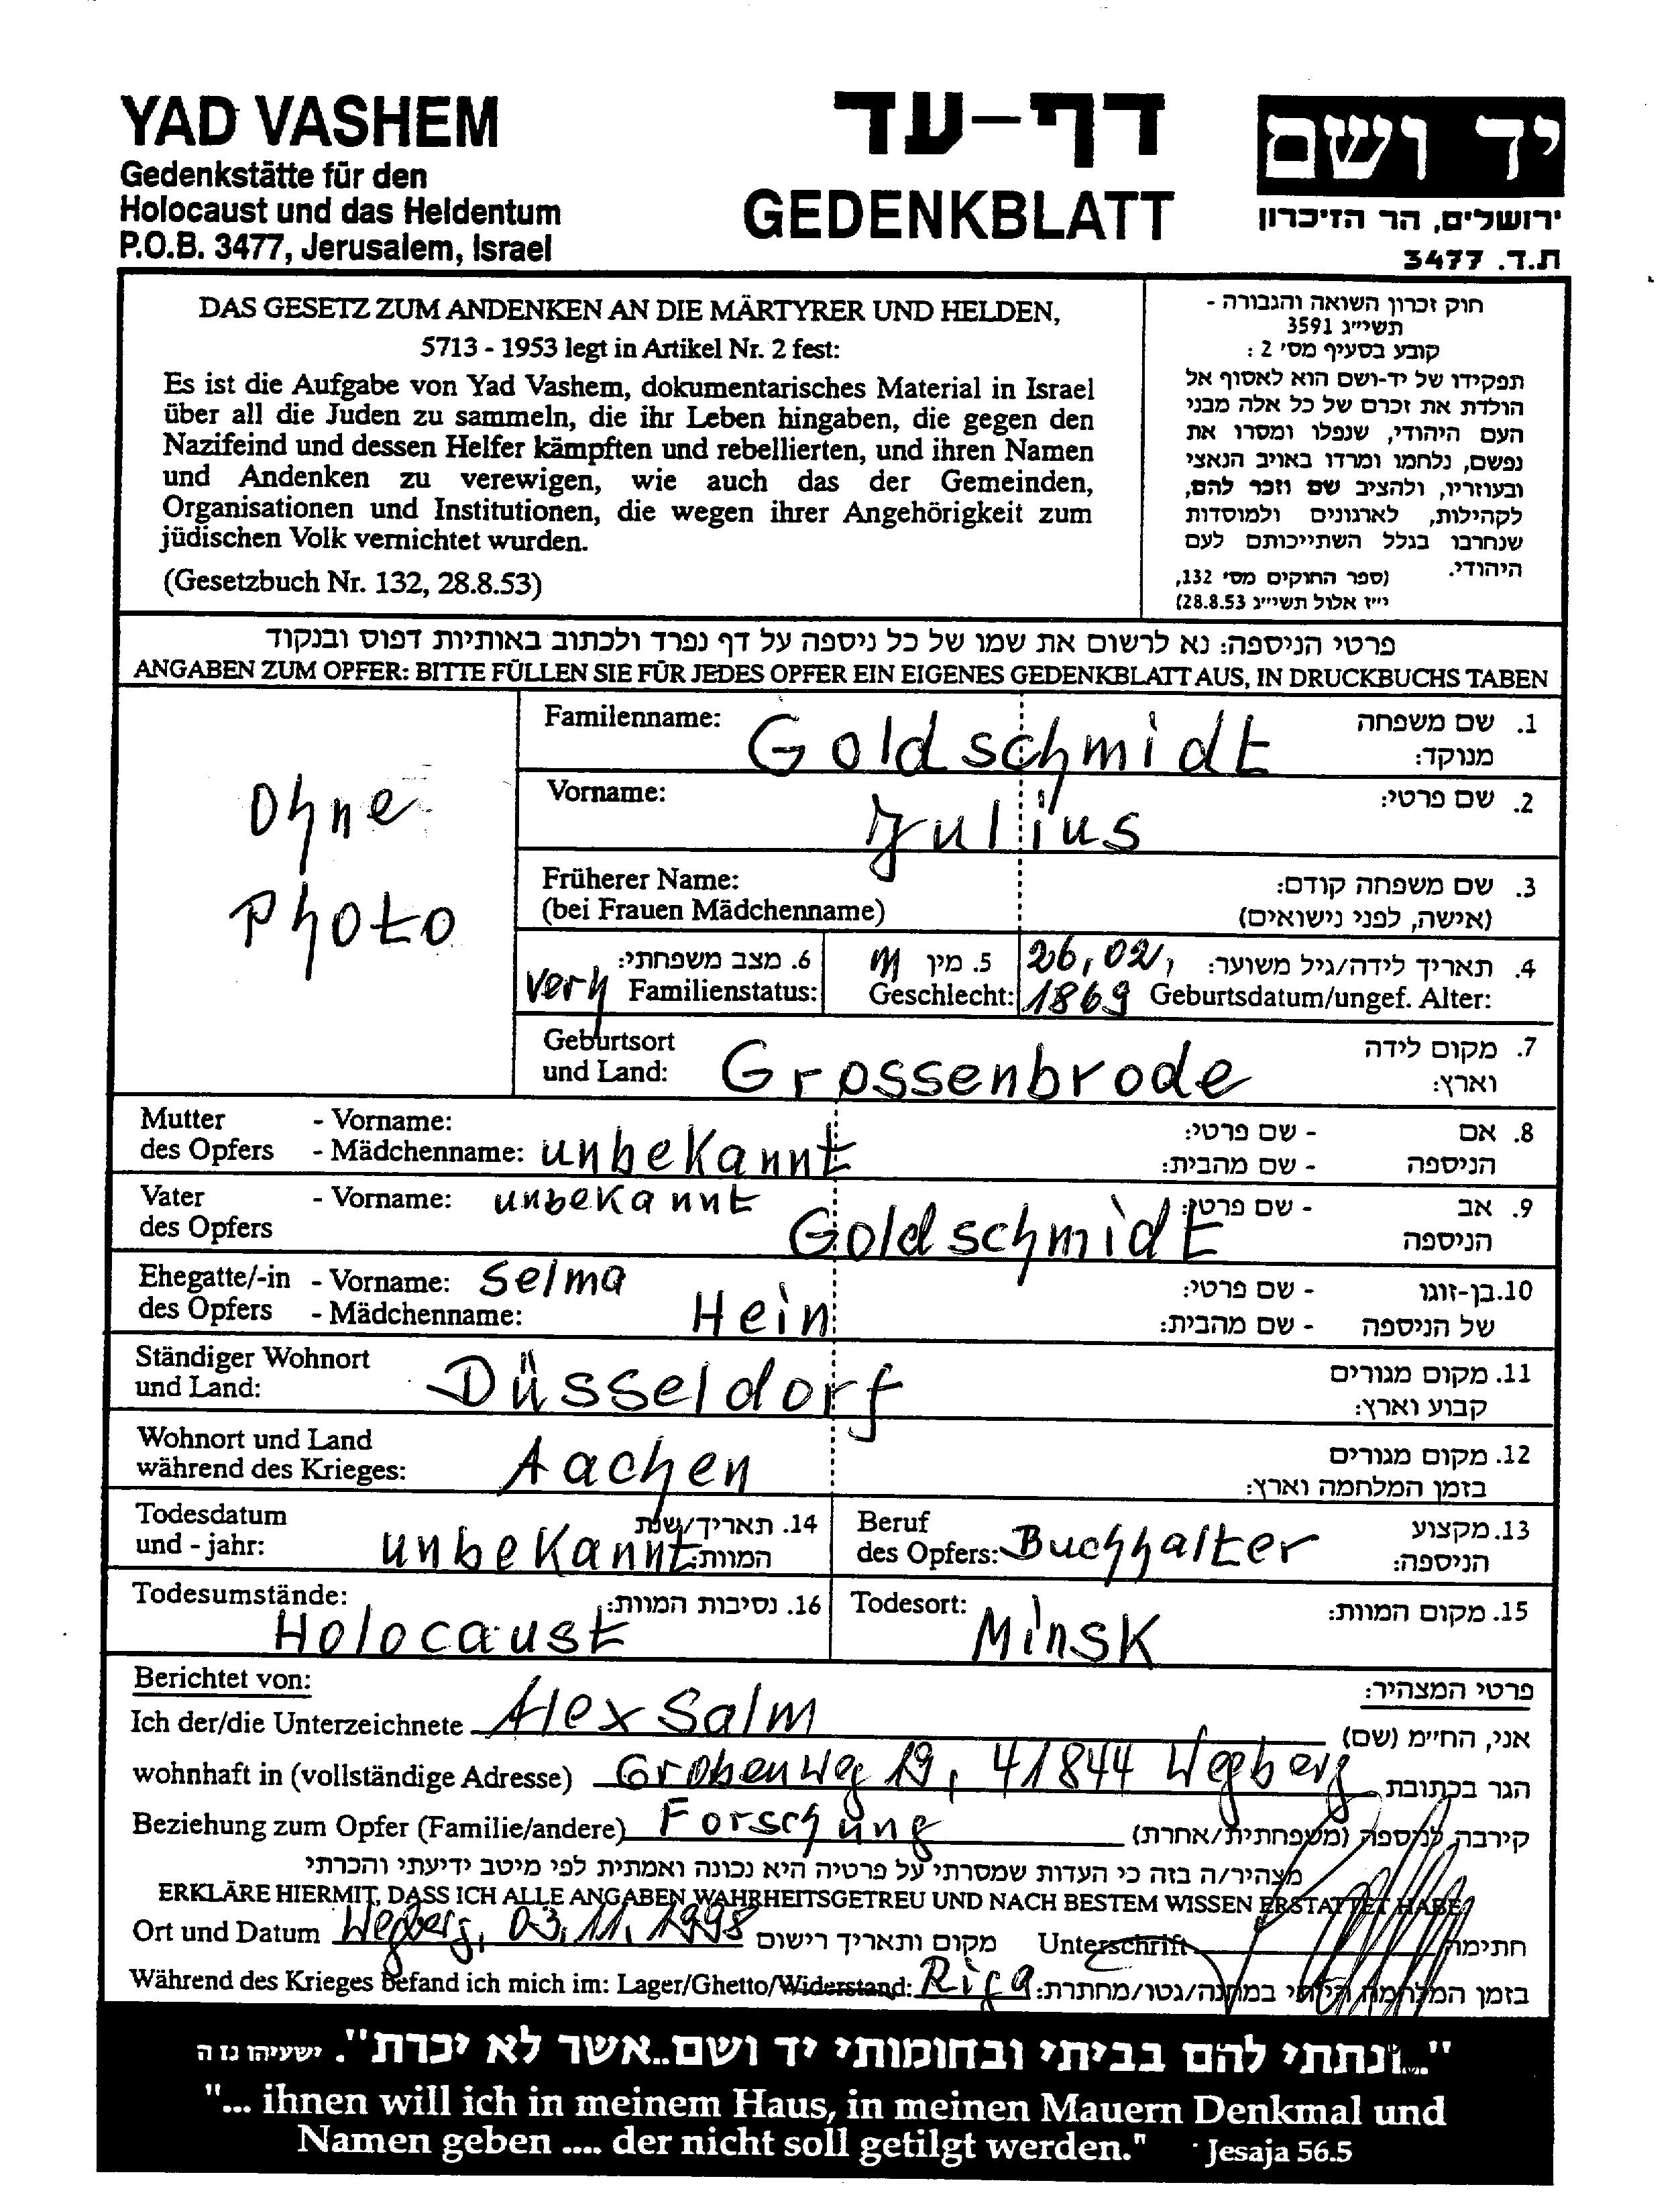 YAD VASHEM
Gedenkstätte für den
Holocaust und das Heldentum
P.O.B. 3477, Jerusalem, Israel
דף-עד
GEDENKBLATT
יד ושם
ירושלים, הר הזיכרון
ת.ד. 3477
DAS GESETZ ZUM ANDENKEN AN DIE MÄRTYRER UND HELDEN,
5713 - 1953 legt in Artikel Nr. 2 fest:
Es ist die Aufgabe von Yad Vashem, dokumentarisches Material in Israel
über all die Juden zu sammeln, die ihr Leben hingaben, die gegen den
Nazifeind und dessen Helfer kämpften und rebellierten, und ihren Namen
und Andenken zu verewigen, wie auch das der Gemeinden,
Organisationen und Institutionen, die wegen ihrer Angehörigkeit zum
jüdischen Volk vernichtet wurden.
(Gesetzbuch Nr. 132, 28.8.53)
חוק זכרון השואה והגבורה -
תשי״ג 3591
קובע בסעיף מס׳ 2 :
תפקידו של יד-ושם הוא לאסוף אל
הולדת את זכרם של כל אלה מבני
העם היהודי, שנפלו ומסרו את
נפשם, נלחמו ומרדו באויב הנאצי
ובעוזריו, ולהציב שם וזכר להם,
לקהילות, לארגונים ולמוסדות
שנחרבו בגלל השתייכותם לעם
היהודי.
(ספר החוקים מס׳ 132,
י״ז אלול תשי״ג 28.8.53)
פרטי הניספה: נא לרשום את שמו של כל ניספה על דף נפרד ולכתוב באותיות דפוס ובנקוד
ANGABEN ZUM OPFER: BITTE FÜLLEN SIE FÜR JEDES OPFER EIN EIGENES GEDENKBLATT AUS, IN DRUCKBUCHS TABEN
Ohne
Photo
Familenname: Goldschmidt 1. שם משפחה
מנוקד:
Vorname: Julius 2. שם פרטי:
Früherer Name: 3. שם משפחה קודם:
(bei Frauen Mädchenname) (אישה, לפני נישואים)
6. מצב משפחתי: 5. מין M 26,02, 4. תאריך לידה/גיל משוער:
verh Familienstatus: Geschlecht: 1869 Geburtsdatum/ungef. Alter:
Geburtsort 7. מקום לידה
und Land: Grossenbrode וארץ:
Mutter - Vorname: - שם פרטי: 8. אם
des Opfers - Mädchenname: unbekannt - שם מהבית: הניספה
Vater - Vorname: unbekannt - שם פרטי: 9. אב
des Opfers Goldschmidt הניספה
Ehegatte/-in - Vorname: Selma - שם פרטי: 10. בן-זוגו
des Opfers - Mädchenname: Hein - שם מהבית: של הניספה
Ständiger Wohnort 11. מקום מגורים
und Land: Düsseldorf קבוע וארץ:
Wohnort und Land 12. מקום מגורים
während des Krieges: Aachen בזמן המלחמה וארץ:
Todesdatum 14. תאריך/שנת Beruf 13. מקצוע
und - jahr: unbekannt המוות: des Opfers: Buchhalter הניספה:
Todesumstände: 16. נסיבות המוות: Todesort: 15. מקום המוות:
Holocaust Minsk
Berichtet von: פרטי המצהיר:
Ich der/die Unterzeichnete Alex Salm אני, החי״מ (שם)
wohnhaft in (vollständige Adresse) Grabenweg 19, 41844 Wegberg הגר בכתובת
Beziehung zum Opfer (Familie/andere) Forschung קירבה לניספה (משפחתית/אחרת)
מצהיר/ה בזה כי העדות שמסרתי על פרטיה היא נכונה ואמתית לפי מיטב ידיעתי והכרתי
ERKLÄRE HIERMIT, DASS ICH ALLE ANGABEN WAHRHEITSGETREU UND NACH BESTEM WISSEN ERSTATTET HABE
Ort und Datum Wegberg, 03,11,1998 מקום ותאריך רישום Unterschrift חתימה
Während des Krieges befand ich mich im: Lager/Ghetto/Widerstand: Riga בזמן המלחמה הייתי במחנה/גטו/מחתרת:
"...ונתתי להם בביתי ובחומותי יד ושם..אשר לא יכרת". ישעיהו נו ה
"... ihnen will ich in meinem Haus, in meinen Mauern Denkmal und
Namen geben .... der nicht soll getilgt werden." Jesaja 56.5